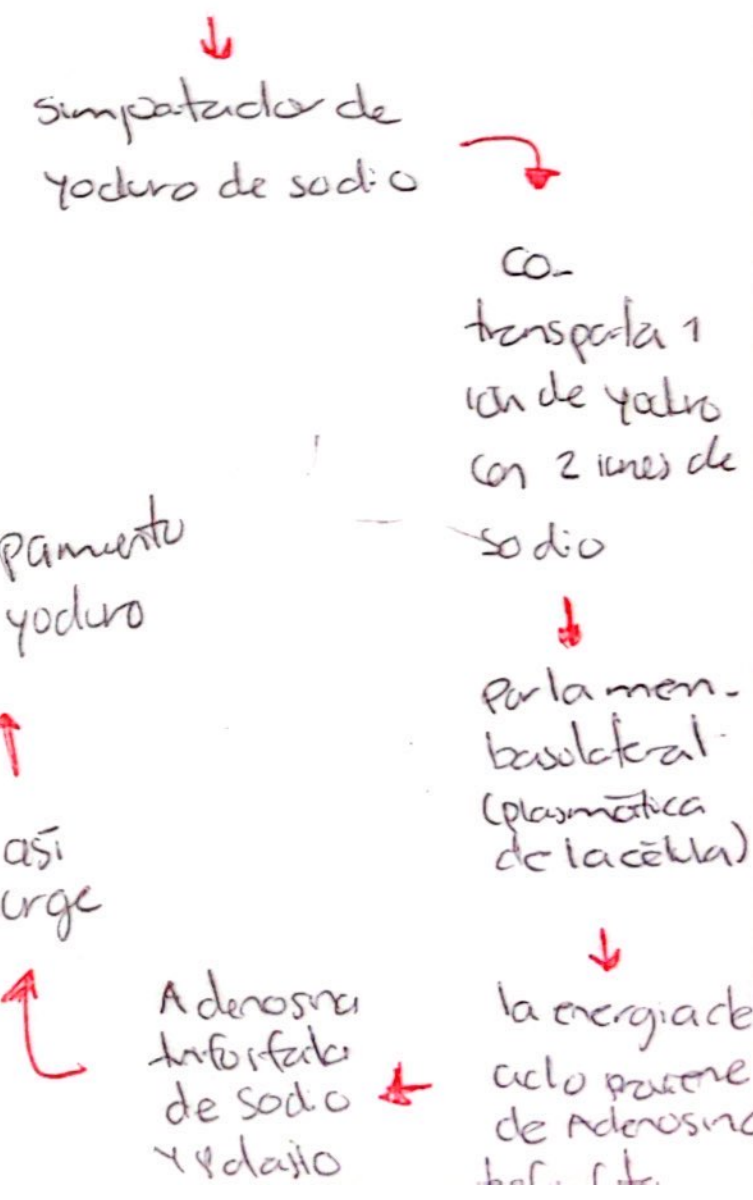 simpotador de
yoduro de sodio
co-
transporta 1
ión de yoduro
con 2 iones de
sodio
por la mem-
basolateral
(plasmática
de la célula)
la energia de
ciclo proviene
de Adenosina
Adenosina
trifosfato
de sodio
y potasio
así
urge
pamiento
yoduro